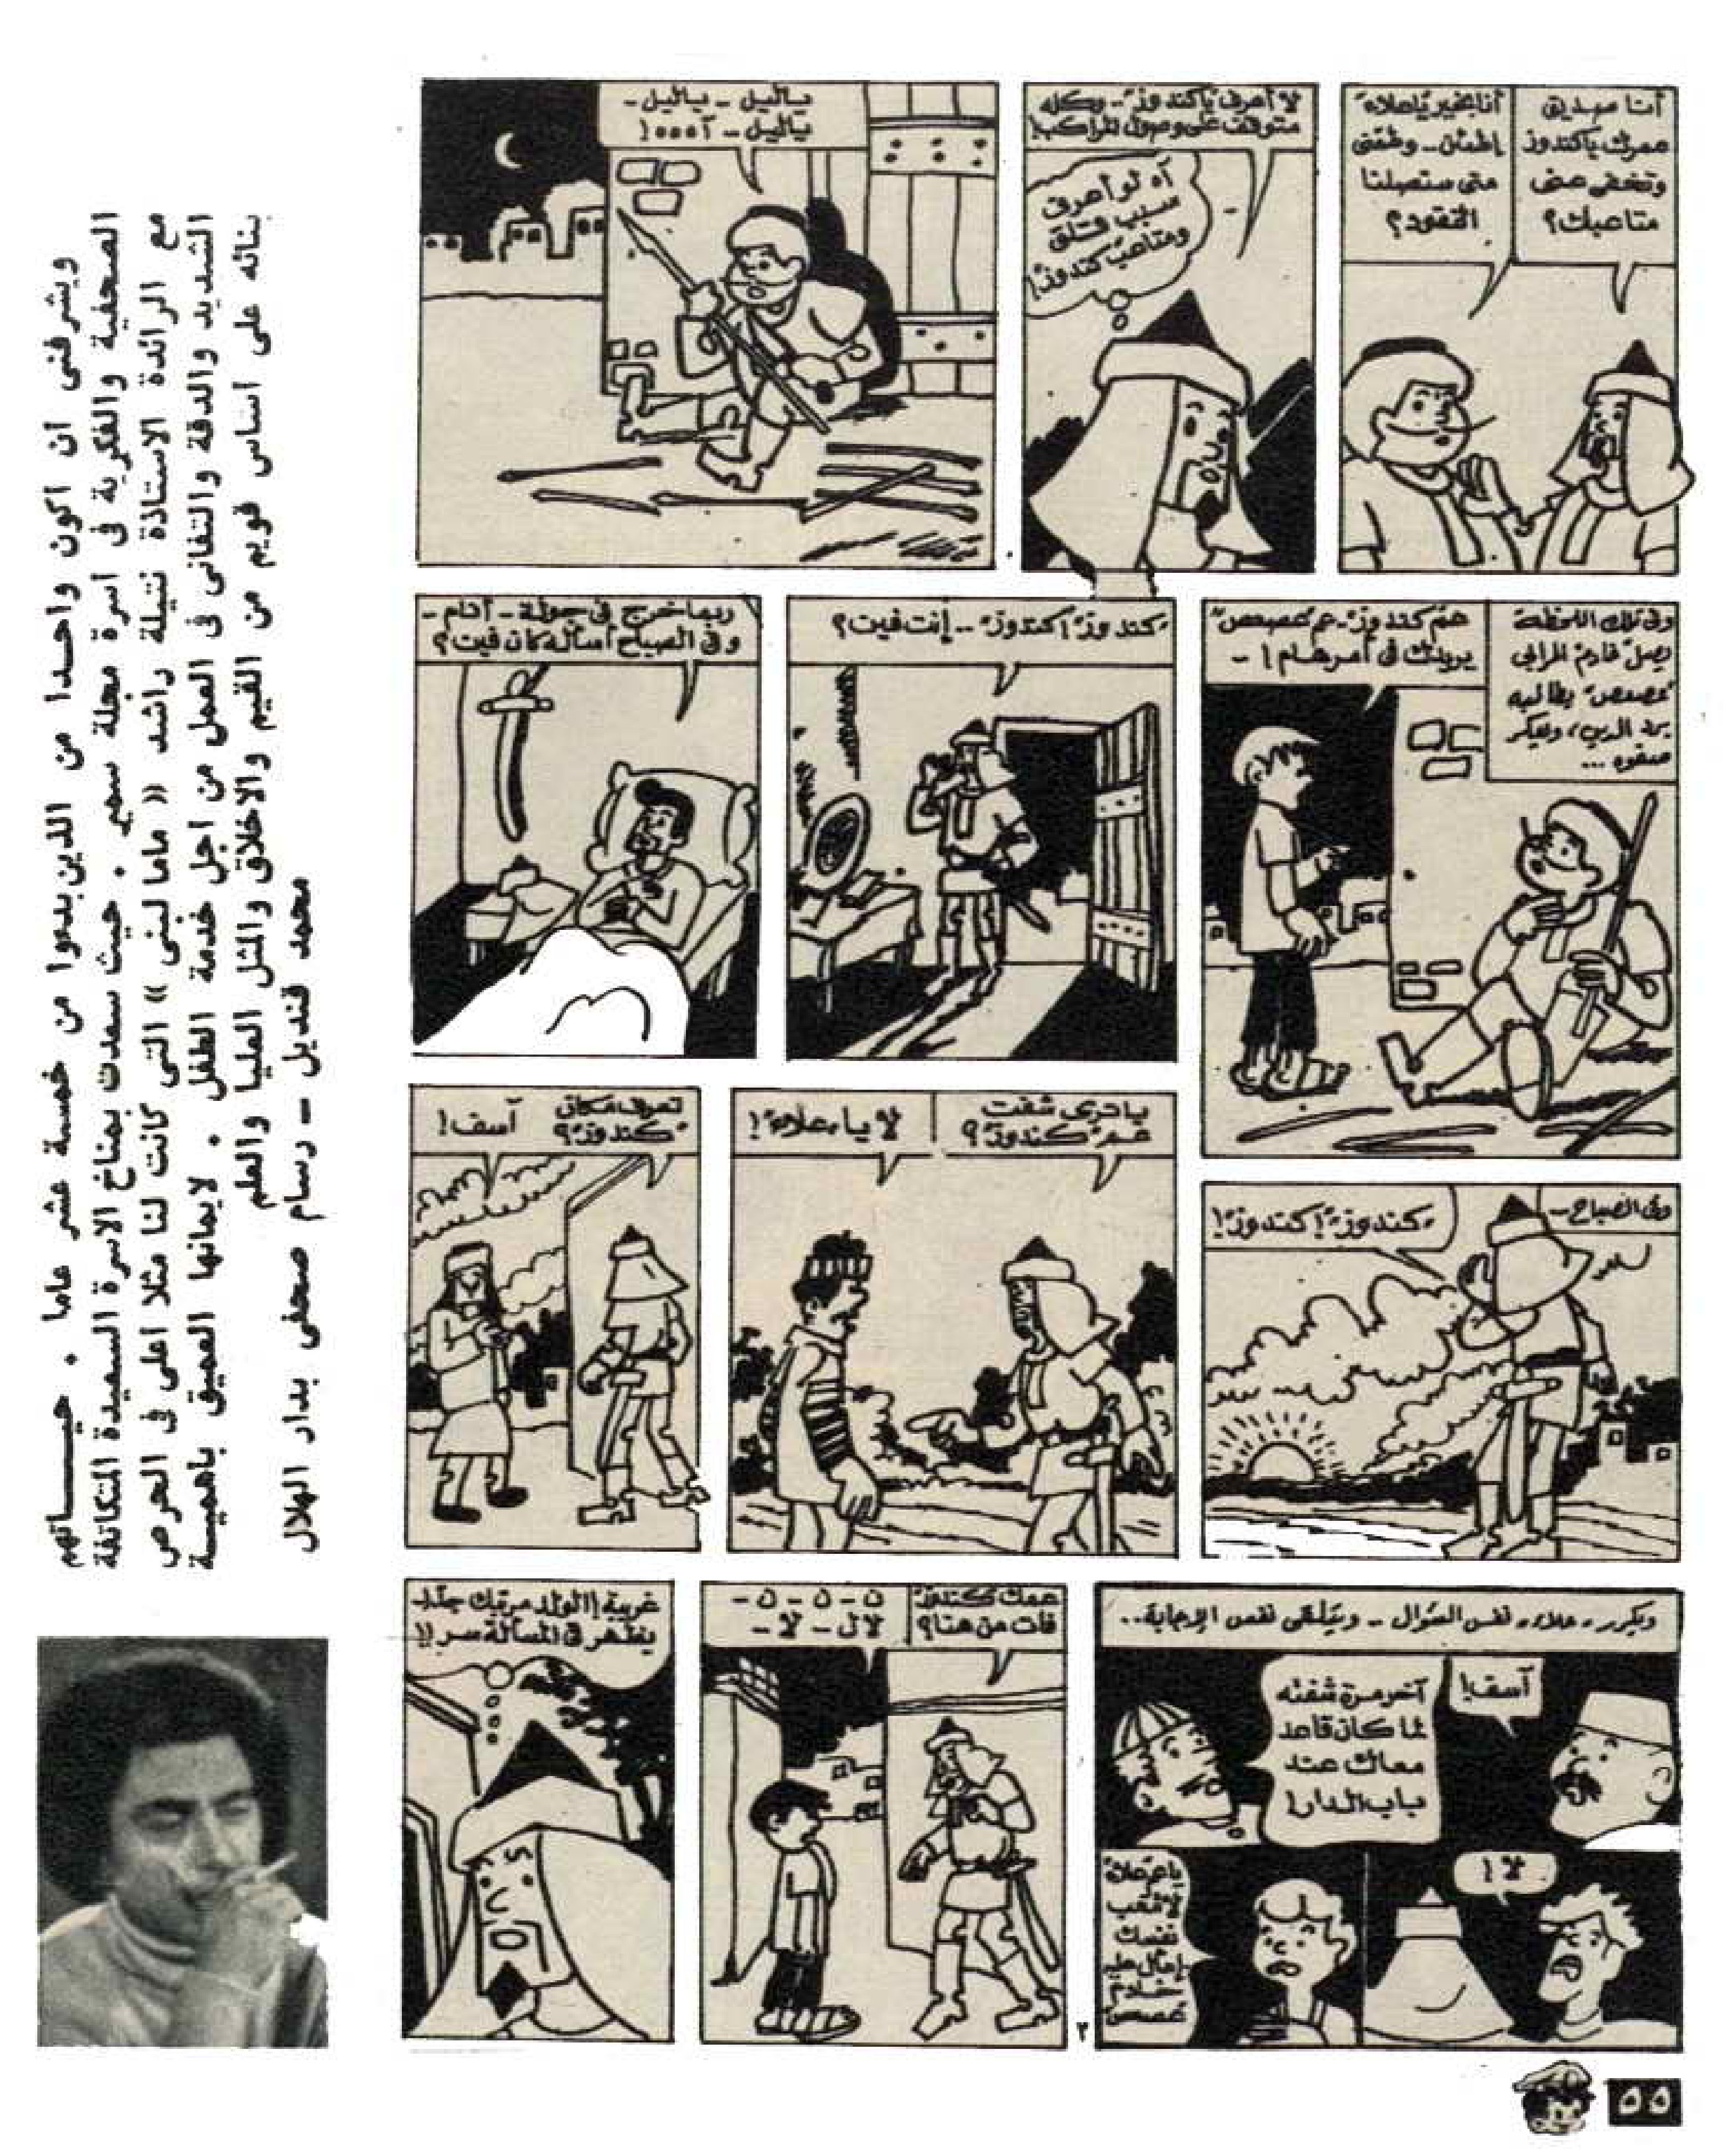 أنا صديق
عمرك ياكندوز
وتخفى عنى
متاعبك؟
أنا بخير ياعلاء
إطمئن .. وطمنى
متى ستصلنا
النقود؟
لا أعرف ياكندوز - وكله
متوقف على وصول المراكب!
آه لو أعرف
سبب قلق
ومتاعب كندوز!
ياليل - ياليل -
ياليل - آههه!
وفى تلك اللحظة
يصل خادم المرابى
"عصعص" يطالبه
برد الدين، ويعكر
صفوه ...
عم كندوز - عم "عصعص"
يريدك فى أمر هام! -
كندوز! كندوز .. إنت فين؟
ربما خرج فى جولة - أنام -
وفى الصباح أسأله كان فين؟
وفى الصباح -
كندوز! كندوز!
ياترى شفت
عم كندوز؟
لا يا علاء!
تعرف مكان
كندوز؟
آسف!
ويكرر "علاء" نفس السؤال - ويتلقى نفس الإجابة ..
آسف!
آخر مرة شفته
لما كان قاعد
معاك عند
باب الدار!
لا!
ياعم علاء
نفسك
خادم
عصعص
عمك كندوز
فات من هنا؟
ن - ن - ن -
لا ل - لا -
غريبة! الولد مرتبك جدا
يظهر فى المسألة سر!!
٢
٥٥
ويشرفنى أن أكون واحدا من الذين بدءوا من خمسة عشر عاما . حياتهم
الصحفية والفكرية فى أسرة مجلة سمير . حيث سعدت بمناخ الأسرة السعيدة المتكاتفة
مع الرائدة الاستاذة نتيلة راشد « ماما لبنى » التى كانت لنا مثلا أعلى فى الحرص
الشديد والدقة والتفانى فى العمل من أجل خدمة الطفل . لايمانها العميق بأهمية
بنائه على أساس قويم من القيم والاخلاق والمثل العليا والعلم
محمد قنديل - رسام صحفى بدار الهلال